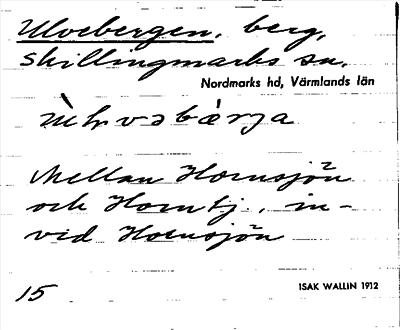 Ulvebergen, berg,
Skillingmarks sn.
Nordmarks hd, Värmlands län
Mellan Hornsjön
och Horntj., in-
vid Hornsjön
15
ISAK WALLIN 1912